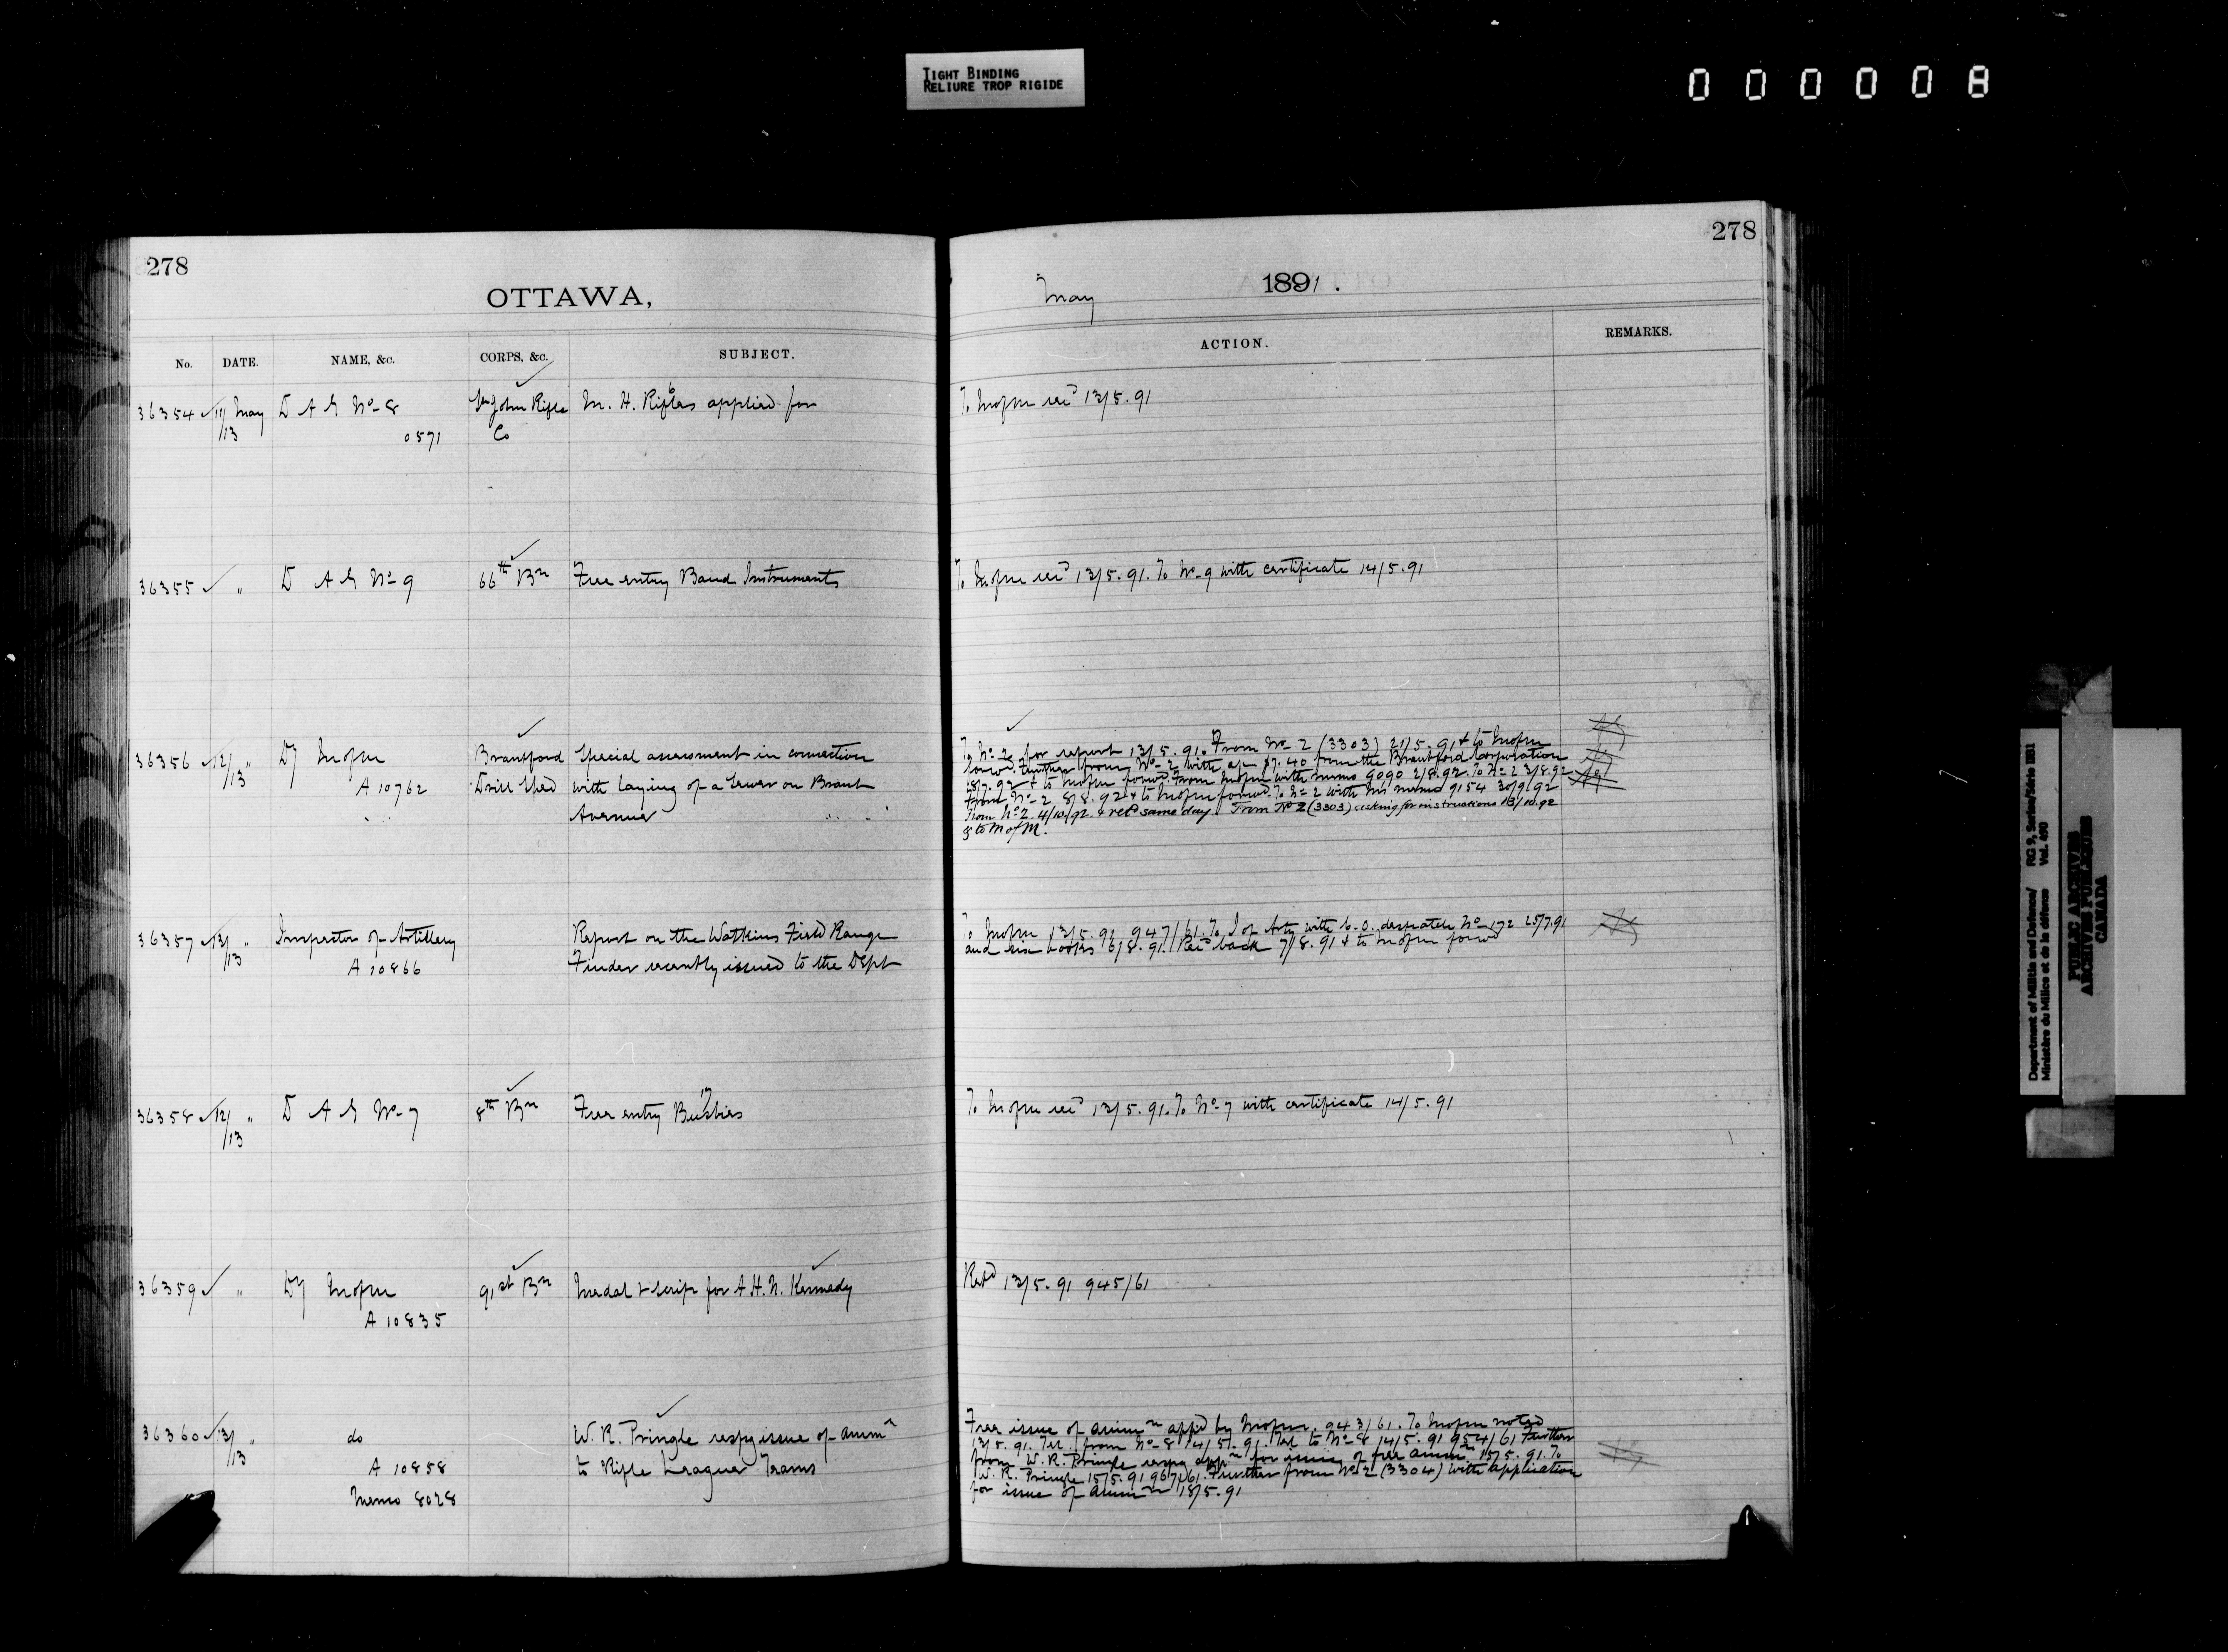 TIGHT BINDING
RELIURE TROP RIGIDE
000008
278
OTTAWA,
No. DATE. NAME, &c. CORPS, &c. SUBJECT.
36354 11/13 May D A G No 8 St John Rifle M. H. Rifles applied for
0571 Co
36355 " D A G No 9 66th Bn Free entry Band Instruments
36356 12/13 " Brantford Special assessment in connection
A 10762 Drill Shed with laying of a Sewer on Brant
Avenue
36357 13/13 " Inspector of Artillery Report on the Watkins Field Range
A 10866 Finder recently issued to the Dept
36358 12/13 " D A G No 7 8th Bn Free entry Busbies
36359 " 91st Bn Medal & scrip for A. H. N. Kennedy
A 10835
36360 13/13 " do W. R. Pringle respg issue of ammn
A 10858 to Rifle League Teams
Memo 8028
278
May 1891.
ACTION. REMARKS.
13/5.91
13/5.91. To No 9 with certificate 14/5.91
To No 2 for report 13/5.91. From No 2 (3303) 21/5.91 & to
Further from No 2 with 7.40 from the Brantford Corporation
18/7.92 & to with memo 9090 2/8.92. To No 2 3/8.92
From No 2 8/8.92 & to To No 2 with his memo 9154 30/9.92
From No 2 4/10/92 & retd same day. From No 2 (3303) asking for instructions 13/10.92
& to M of M.
To 13/5.91 947/61. To I of Arty with C.O. despatch No 172 25/7.91
and six books 6/8.91. Recd back 7/8.91 & to
13/5.91. To No 7 with certificate 14/5.91
Retd 13/5.91 945/61
Free issue of ammn appd by 943/61. To noted
13/5.91. Tel. from No 8 14/5.91. Tel to No 8 14/5.91 954/61 Further
from W. R. Pringle respg appn for issue of free ammn 15/5.91. To
W. R. Pringle 15/5.91 967/61. Further from No 2 (3304) with application
for issue of ammn 18/5.91
Department of Militia and Defence/ RG 9, Series/Série IIB1
Ministère du Milice et de la défense Vol. 490
PUBLIC ARCHIVES
ARCHIVES PUBLIQUES
CANADA